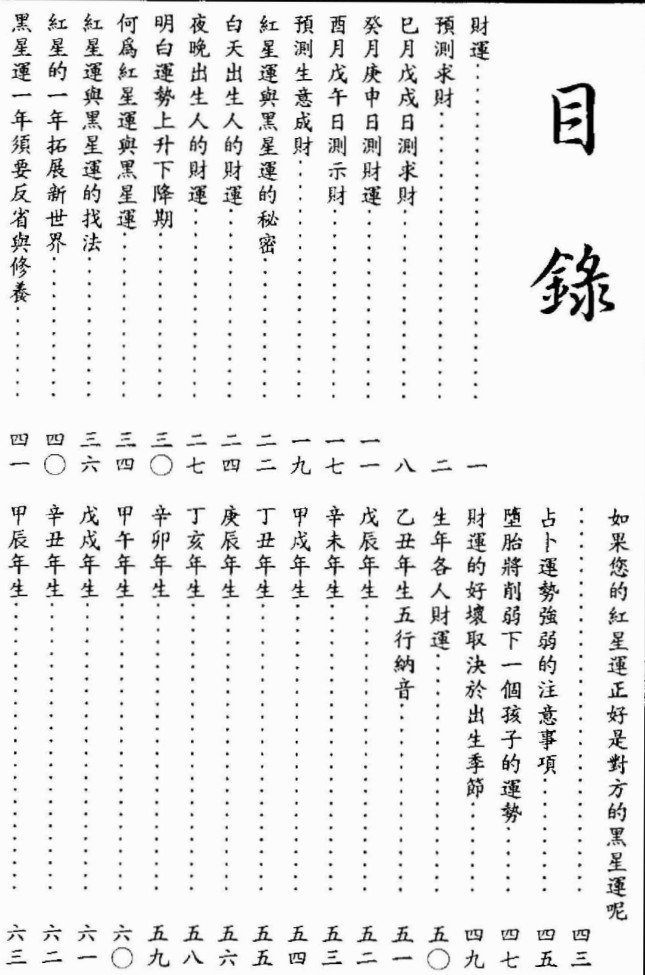 目錄
財運⋯⋯⋯⋯⋯⋯⋯⋯⋯⋯一
預測求財⋯⋯⋯⋯⋯⋯⋯⋯二
巳月戊戌日測求財⋯⋯⋯⋯八
癸月庚申日測財運⋯⋯⋯⋯一一
酉月戊午日測示財⋯⋯⋯⋯一七
預測生意成財⋯⋯⋯⋯⋯⋯一九
紅星運與黑星運的秘密⋯⋯二二
白天出生人的財運⋯⋯⋯⋯二四
夜晚出生人的財運⋯⋯⋯⋯二七
明白運勢上升下降期⋯⋯⋯三〇
何爲紅星運與黑星運⋯⋯⋯三四
紅星運與黑星運的找法⋯⋯三六
紅星的一年拓展新世界⋯⋯四〇
黑星運一年須要反省與修養⋯⋯四一
如果您的紅星運正好是對方的黑星運呢
⋯⋯⋯⋯⋯⋯⋯⋯⋯⋯⋯⋯四三
占卜運勢強弱的注意事項⋯⋯四五
墮胎將削弱下一個孩子的運勢⋯⋯四七
財運的好壞取決於出生季節⋯⋯四九
生年各人財運⋯⋯⋯⋯⋯⋯五〇
乙丑年生五行納音⋯⋯⋯⋯五一
戊辰年生⋯⋯⋯⋯⋯⋯⋯⋯五二
辛未年生⋯⋯⋯⋯⋯⋯⋯⋯五三
甲戌年生⋯⋯⋯⋯⋯⋯⋯⋯五四
丁丑年生⋯⋯⋯⋯⋯⋯⋯⋯五五
庚辰年生⋯⋯⋯⋯⋯⋯⋯⋯五六
丁亥年生⋯⋯⋯⋯⋯⋯⋯⋯五八
辛卯年生⋯⋯⋯⋯⋯⋯⋯⋯五九
甲午年生⋯⋯⋯⋯⋯⋯⋯⋯六〇
戊戌年生⋯⋯⋯⋯⋯⋯⋯⋯六一
辛丑年生⋯⋯⋯⋯⋯⋯⋯⋯六二
甲辰年生⋯⋯⋯⋯⋯⋯⋯⋯六三